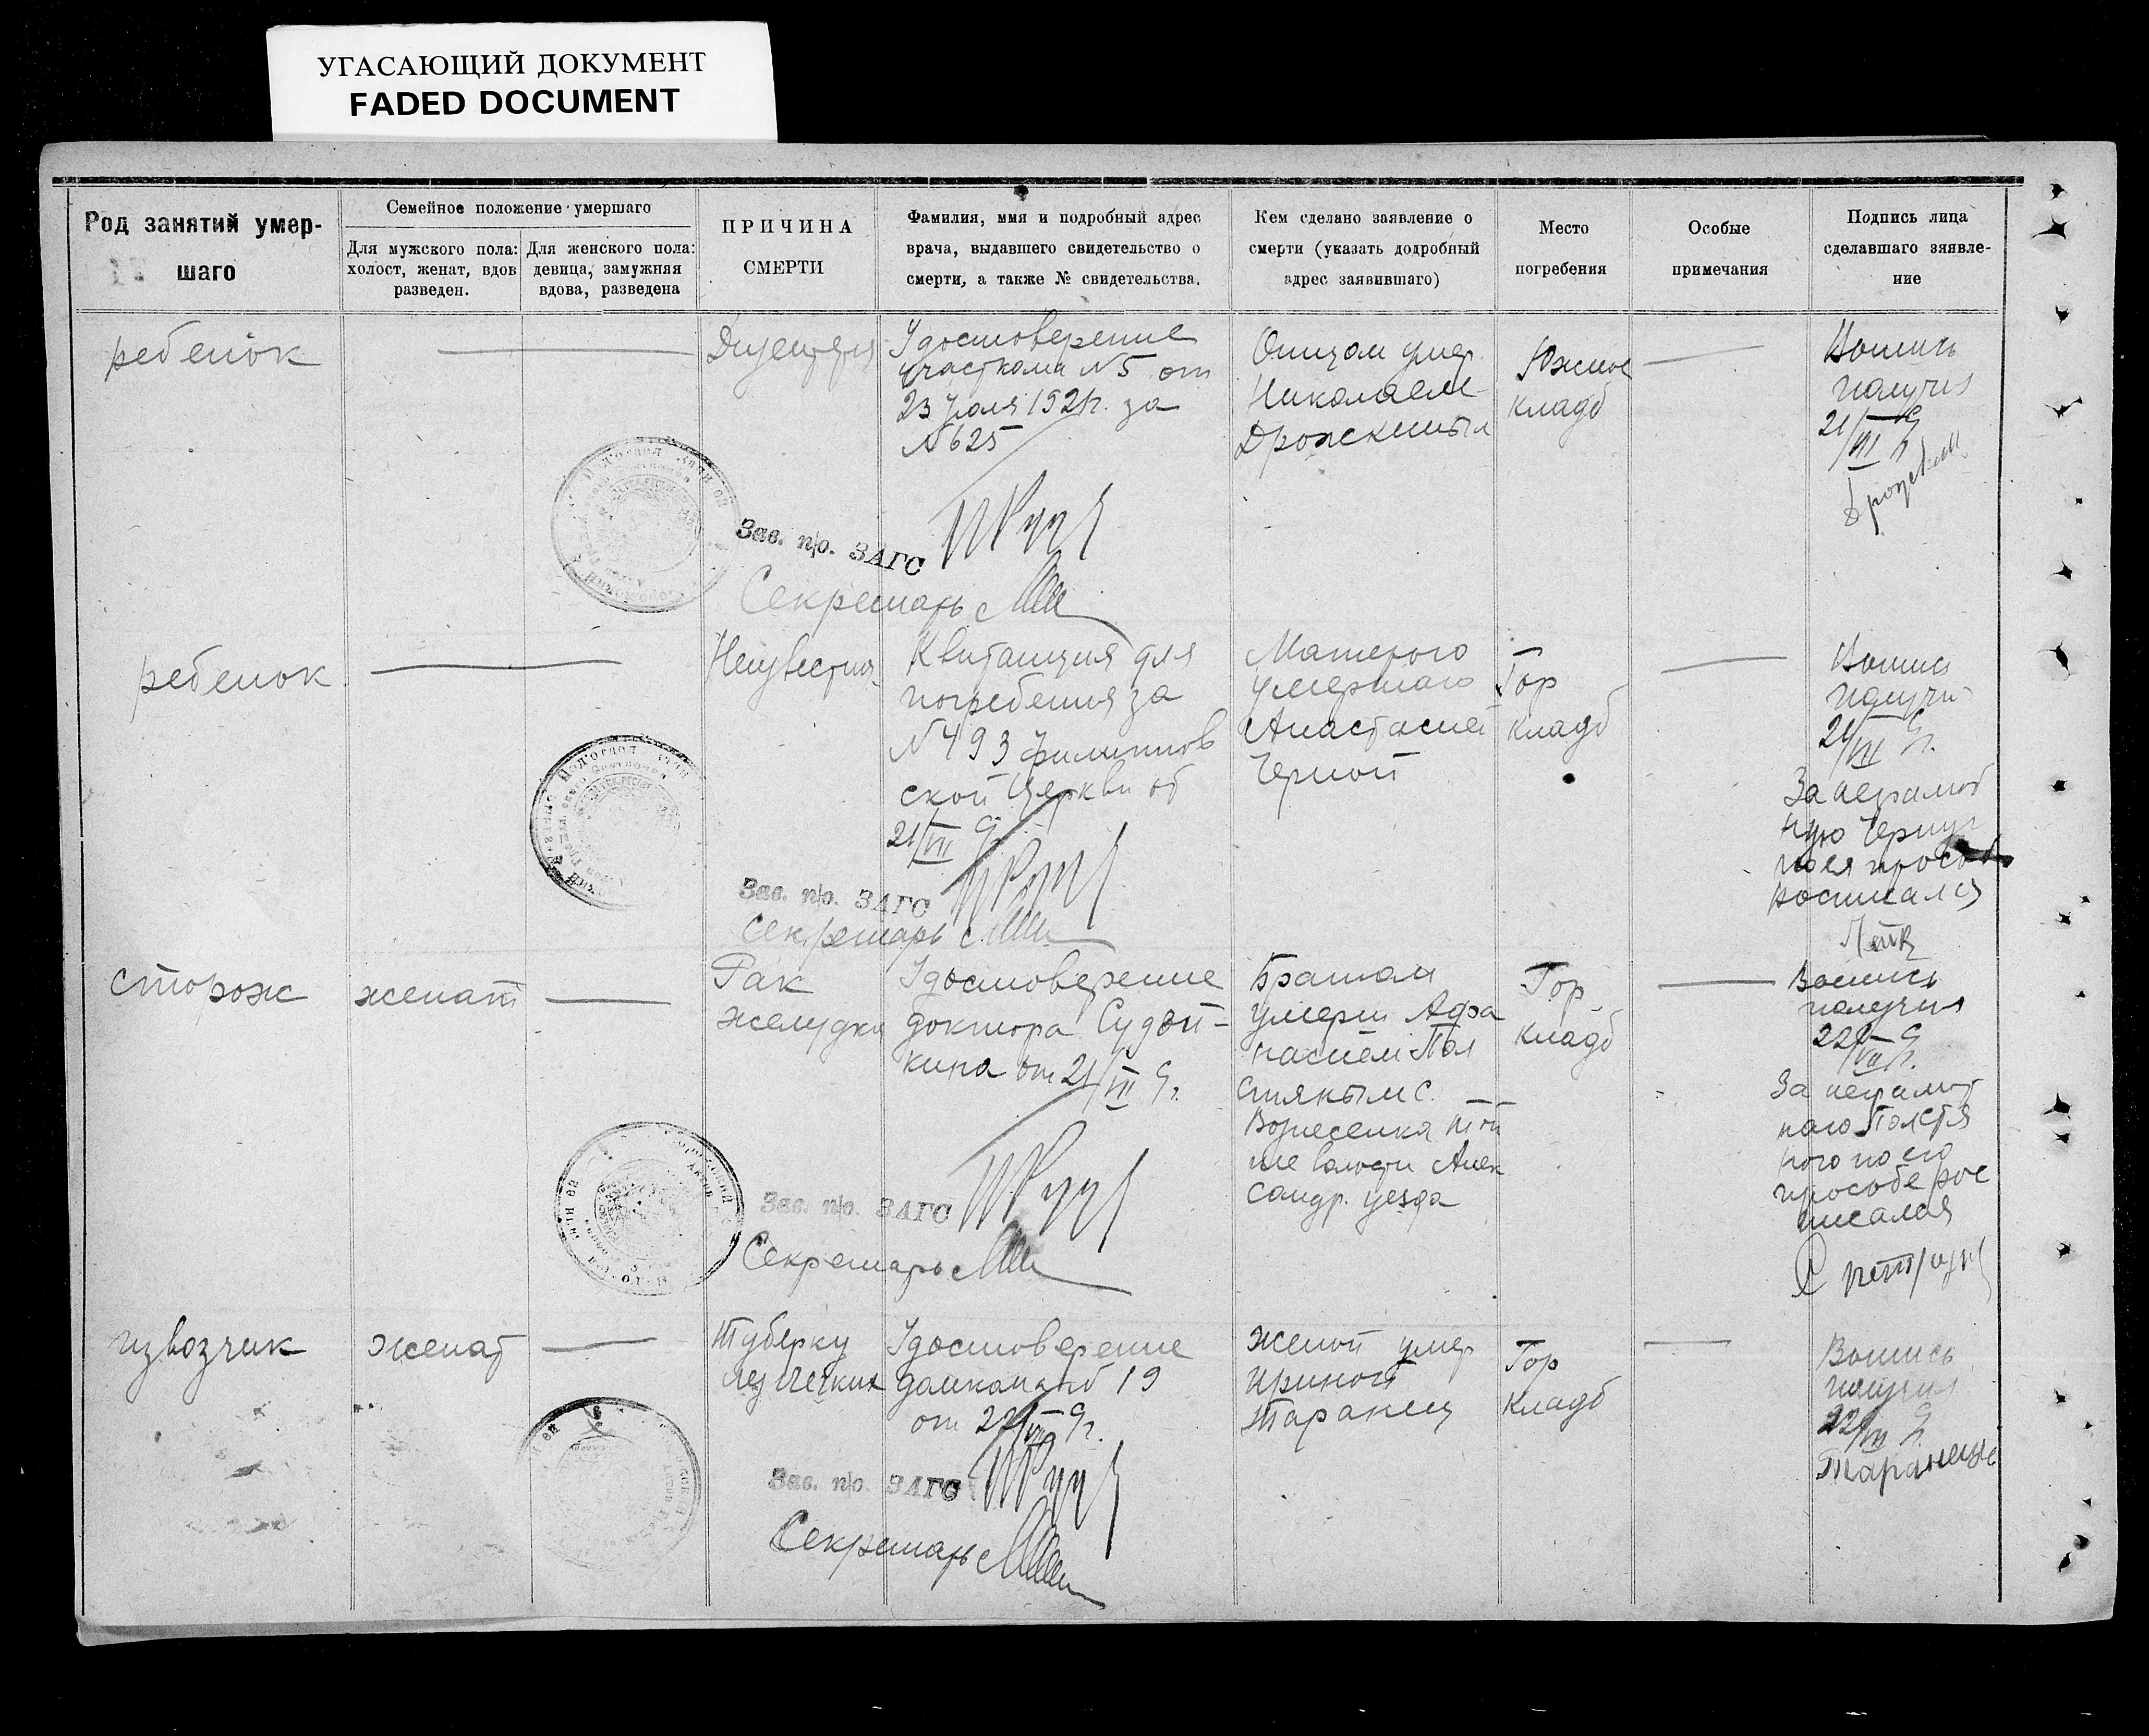 УГАСАЮЩИЙ ДОКУМЕНТ
FADED DOCUMENT
Род занятий умер-
шаго
Семейное положение умершаго
Для мужского пола:
холост, женат, вдов
разведен.
Для женского пола:
девица, замужняя
вдова, разведена
ПРИЧИНА
СМЕРТИ
Фамилия, имя и подробный адрес
врача, выдавшего свидетельство о
смерти, а также № свидетельства.
Кем сделано заявление о
смерти (указать додробный
адрес заявившаго)
Место
погребения
Особые
примечания
Подпись лица
сделавшаго зяявле-
ние
ребенок
Удостоверение
участкома N5 от
23 Июля 1921г. за
N625
Отцом умер.
Николаем
Южное
кладб
получил
21/VII
Зав. п/о. ЗАГС
Секретарь
ребенок
Неизвестна
Квитанция для
погребения за
N493 филиппов
ской Церкви от
21/VII
Матерью
умершаго
Анастасией
Черной
Гор
кладб
21/VII
За неграмот
ную Черную
Зав. п/о. ЗАГС
Секретарь
сторож
женат
Рак
желудка
Удостоверение
доктора Судой-
кина от 21/VII
Братом
умерш Афа
насием Пол
стяным с.
Вознесенка той
же волости Алек
сандр. уезда
Гор.
кладб
получил
22/VII
За неграмот
наго Полстя
ного по его
просьбе рос
писался
Зав. п/о. ЗАГС
Секретарь
извозчик
женат
Туберку
Удостоверение
домкома N 19
от 22/VII
женой умер
Ириной
Таранец
Гор
кладб
получил
22/VII
Зав. п/о. ЗАГС
Секретарь